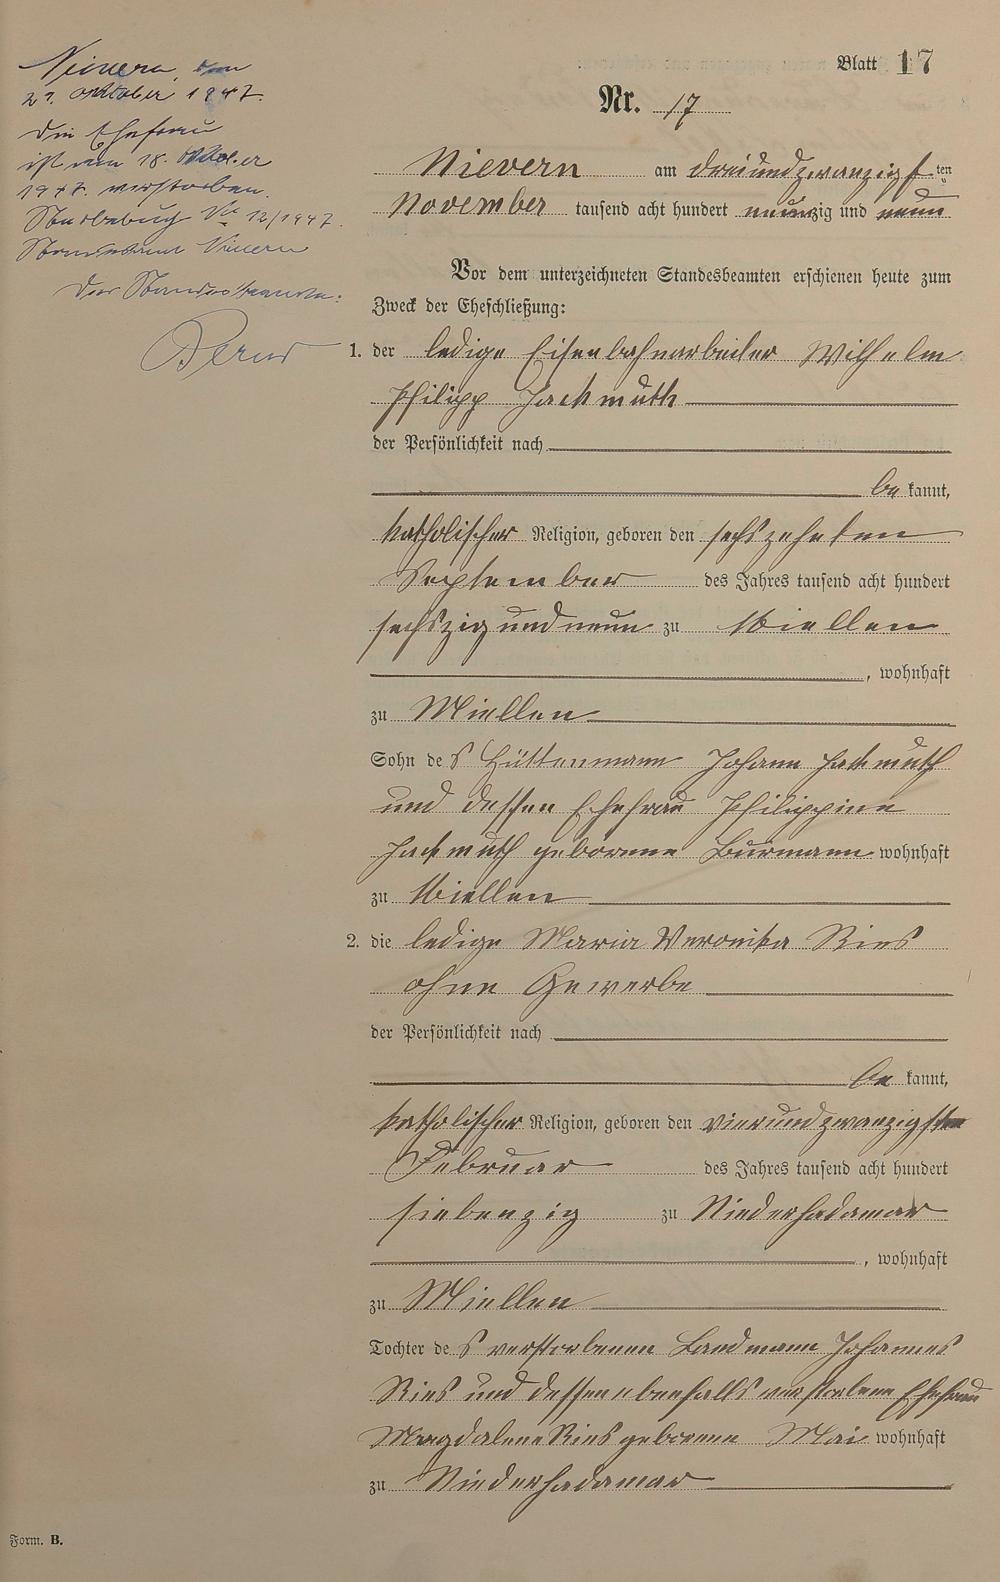 Nievern, den
27. Oktober 1947.
Die Ehefrau
ist am 18. Oktober
1947 verstorben.
Sterbebuch No 12/1947.
Standesamt Nievern
Der Standesbeamte:
Blatt 17
Nr. 17
Nievern am dreiundzwanzigsten
November tausend acht hundert neunzig und neun
Vor dem unterzeichneten Standesbeamten erschienen heute zum
Zweck der Eheschließung:
1. der ledige Eisenbahnarbeiter Wilhelm
Philipp Hackmuth
der Persönlichkeit nach
be kannt,
katholischer Religion, geboren den sechszehnten
September des Jahres tausend acht hundert
sechszig und neun zu Miellen
, wohnhaft
zu Miellen
Sohn des Hüttenmann Johann Hackmuth
und dessen Ehefrau Philippine
Hackmuth geborene Burmann wohnhaft
zu Miellen
2. die ledige Maria Veronika Ries
ohne Gewerbe
der Persönlichkeit nach
be kannt,
katholischer Religion, geboren den vierundzwanzigsten
Februar des Jahres tausend acht hundert
siebenzig zu Niederhadamar
, wohnhaft
zu Miellen
Tochter des verstorbenen Landmann Johannes
Ries und dessen ebenfalls verstorbene Ehefrau
Magdalene Ries geborene Mai wohnhaft
zu Niederhadamar
Form. B.